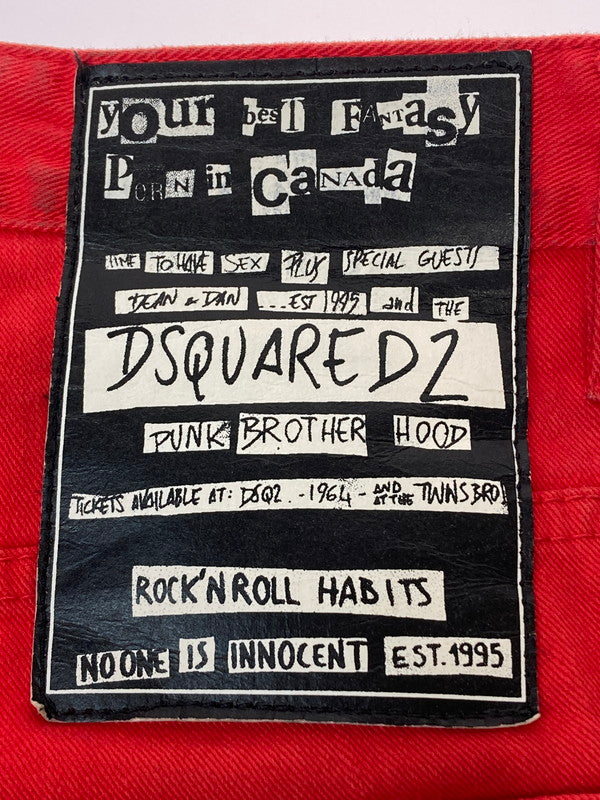 yOur besT FANTasy
PORN in CaNADa
TIME TO HAVE SEX PLUS SPECIAL GUESTS
DEAN & DAN ...EST 1995 and THE
DSQUARED2
PUNK BROTHER HOOD
TICKETS AVAILABLE AT: DSQ2 .- 1964 - AND AT THE TWINS BRO!
ROCK'N ROLL HABITS
NO ONE IS INNOCENT EST. 1995